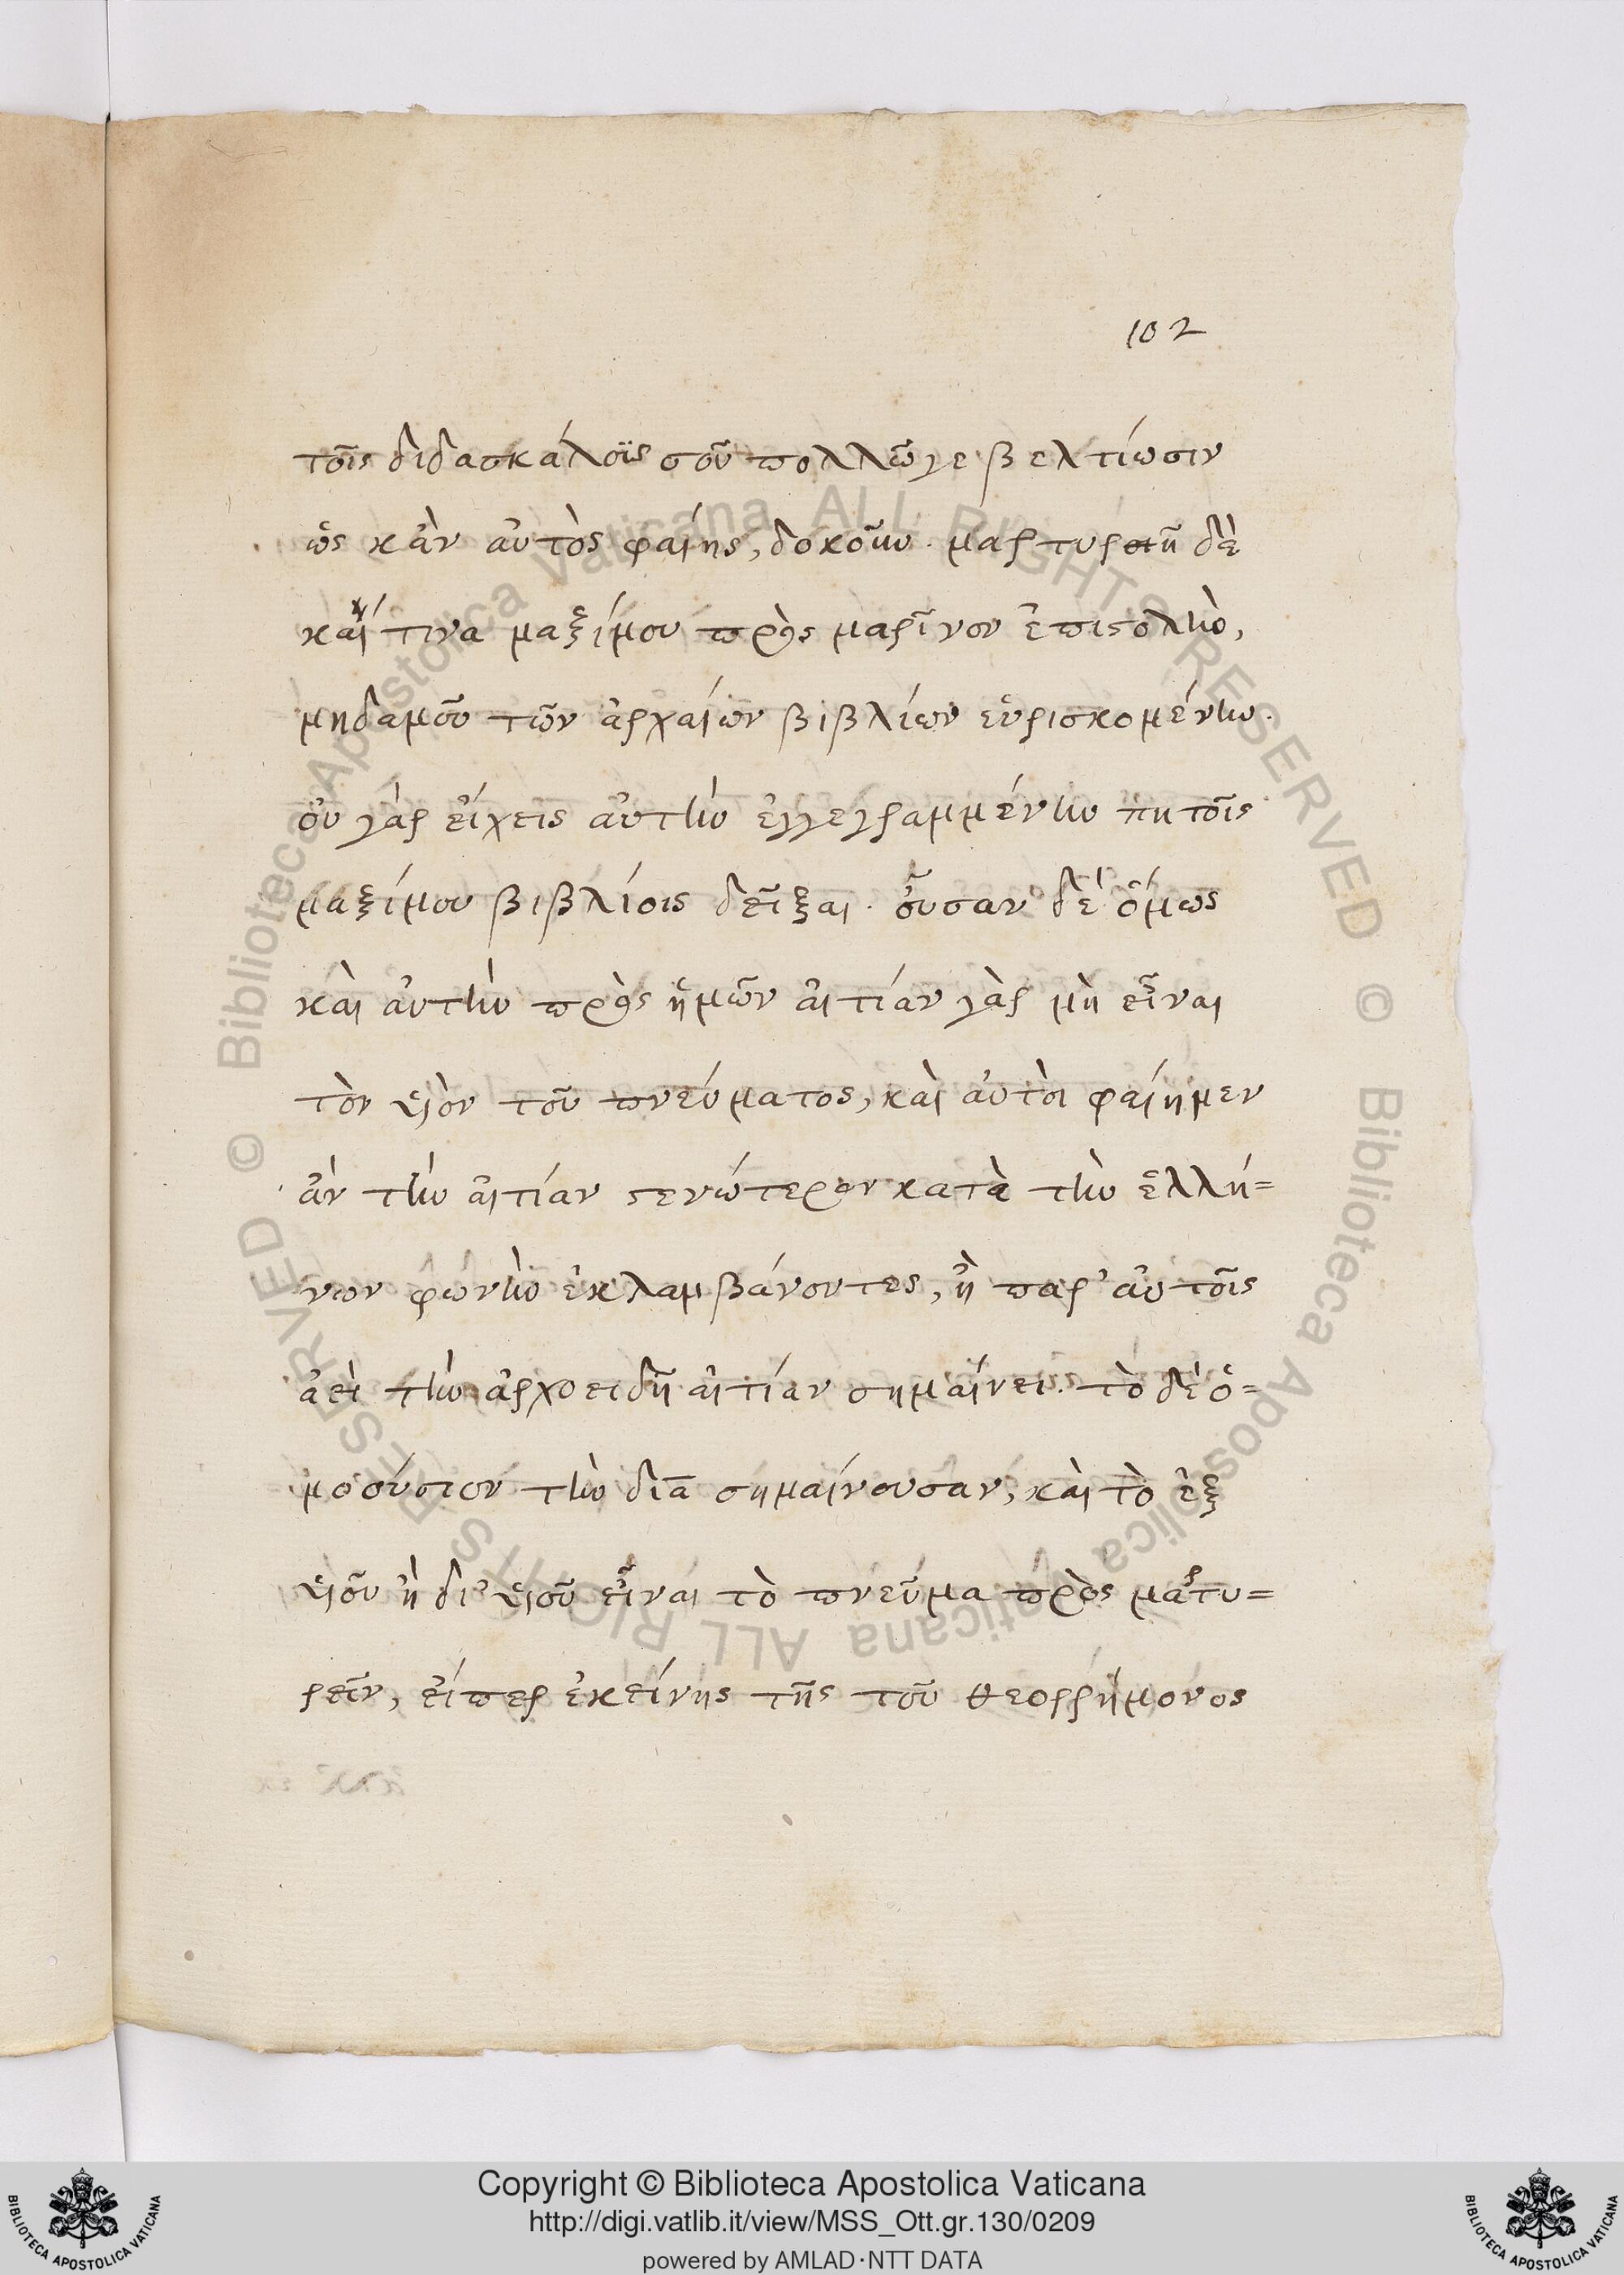 102
τοῖς διδασκάλοις σοῦ πολλῶ γε βελτίωσιν
ὡς κἂν αὐτὸς φαίης, δοκοῦν. μαρτυρῆ δὲ
καί τινα μαξίμου πρὸς μαρῖνον ἐπιστολὴν,
μηδαμοῦ τῶν ἀρχαίων βιβλίων εὑρισκομένην.
οὐ γὰρ εἴχεις αὐτὴν ἐγγεγραμμένην πη τοῖς
μαξίμου βιβλίοις δεῖξαι. οὖσαν δὲ ὅμως
καὶ αὐτὴν πρὸς ἡμῶν αἰτίαν γὰρ μὴ εἶναι
τὸν υἱὸν τοῦ πνεύματος, καὶ αὐτοὶ φαίημεν
ἂν τὴν αἰτίαν στενώτερον κατὰ τὴν ἑλλή=
νων φωνὴν ἐκλαμβάνοντες, ἢ παρ' αὐτοῖς
ἀεὶ τὴν ἀρχοειδῆ αἰτίαν σημαίνει. τὸ δὲ ὁ=
μοούσιον τὴν διὰ σημαίνουσαν, καὶ τὸ ἐξ
υἱοῦ ἢ δι' υἱοῦ εἶναι τὸ πνεῦμα πρὸς μαρτυ=
ρεῖν, εἴπερ ἐκείνης τῆς τοῦ θεορρήμονος
Copyright © Biblioteca Apostolica Vaticana
http://digi.vatlib.it/view/MSS_Ott.gr.130/0209
powered by AMLAD·NTT DATA
BIBLIOTECA APOSTOLICA VATICANA
BIBLIOTECA APOSTOLICA VATICANA
© Biblioteca Apostolica Vaticana ALL RIGHTS RESERVED © Biblioteca Apostolica Vaticana ALL RIGHTS RESERVED